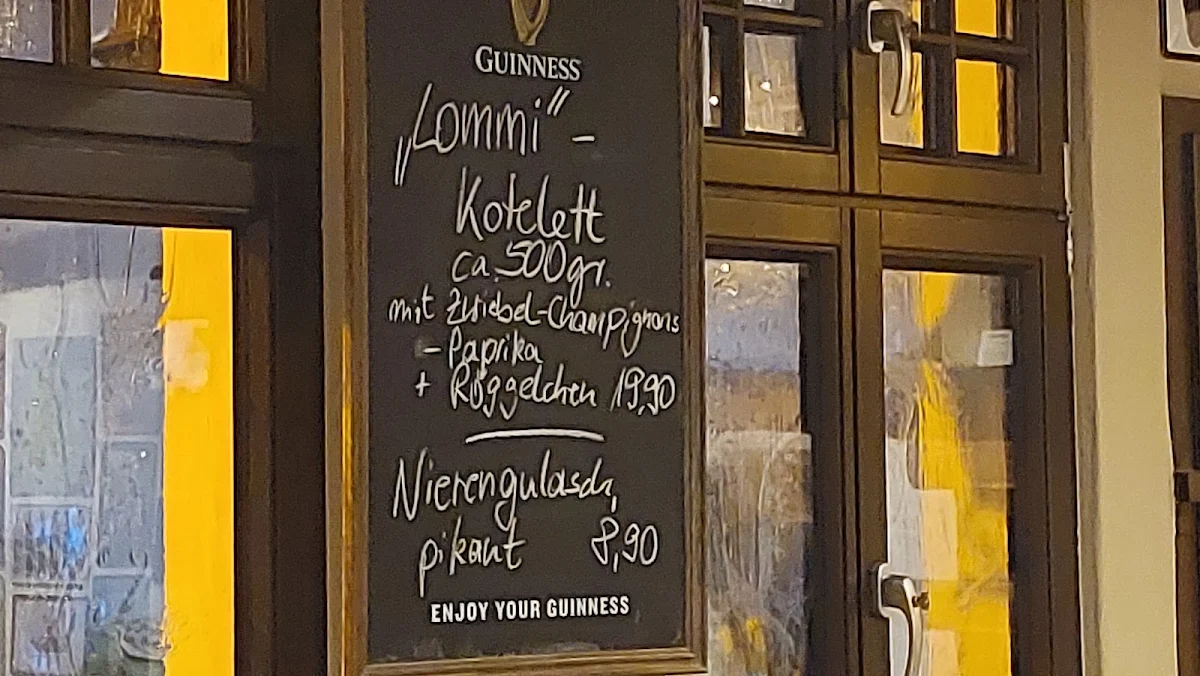 GUINNESS
„Lommi" -
Kotelett
ca. 500gr.
mit Zwiebel-Champignons
- Paprika
+ Röggelchen 19,90
Nierengulasch,
pikant 8,90
ENJOY YOUR GUINNESS